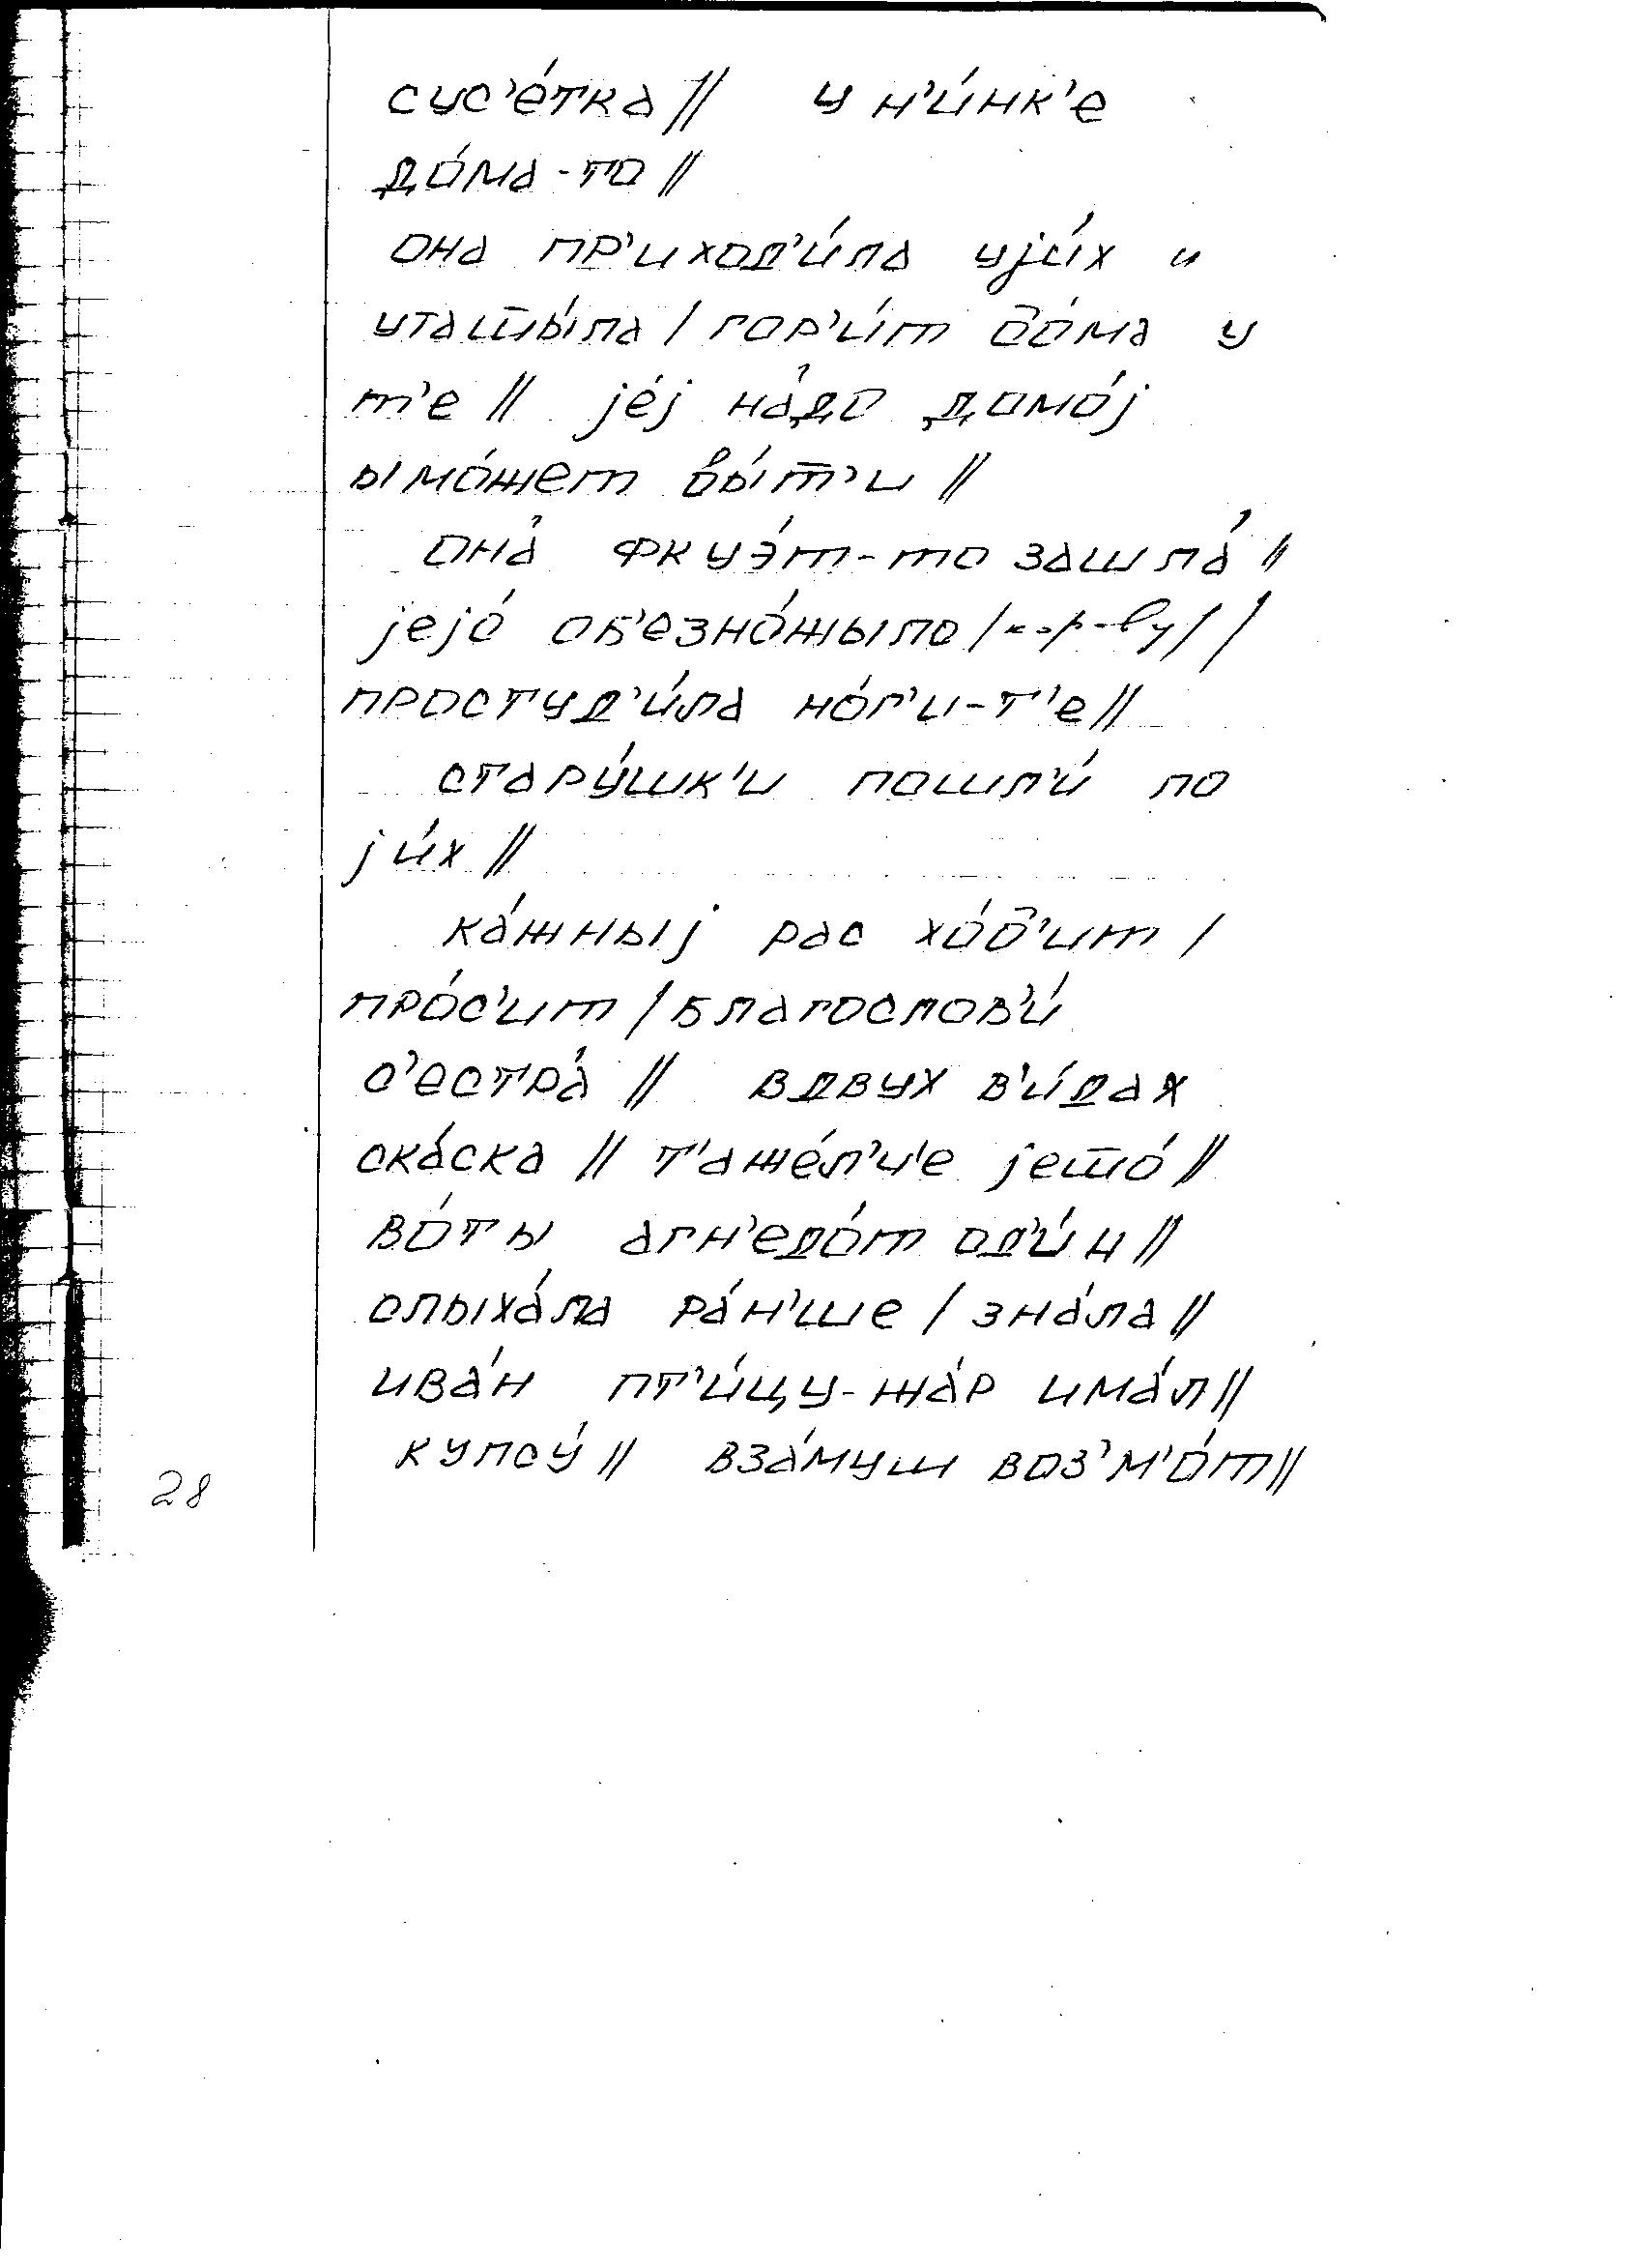 сус'е́тка // у н'и́нк'е
до́ма-то //
она пр'иход'и́ла уjи́х и
уташшы́ла / гор'и́т до́ма у
т'е // jе́j на́до домо́j
ымо́жет вы́т'и //
она́ фкуэ́т-то зашла́ //
jеjо́ об'езно́жыло /корову/ /
простуд'и́ла но́г'и-т'е //
стару́шк'и пошл'и́ по
jи́х //
ка́жныj рас хо́д'ит /
про́с'ит / благослов'и́
с'естра́ // вдвух в'и́дах
ска́ска // т'ажéл'и'е jешшо́ //
во́ты агн'едо́т од'и́н //
слыха́ла ра́н'ше / зна́ла //
ива́н пт'и́цу-жа́р има́л //
купсу́ // вза́муш воз'м'о́т //
28